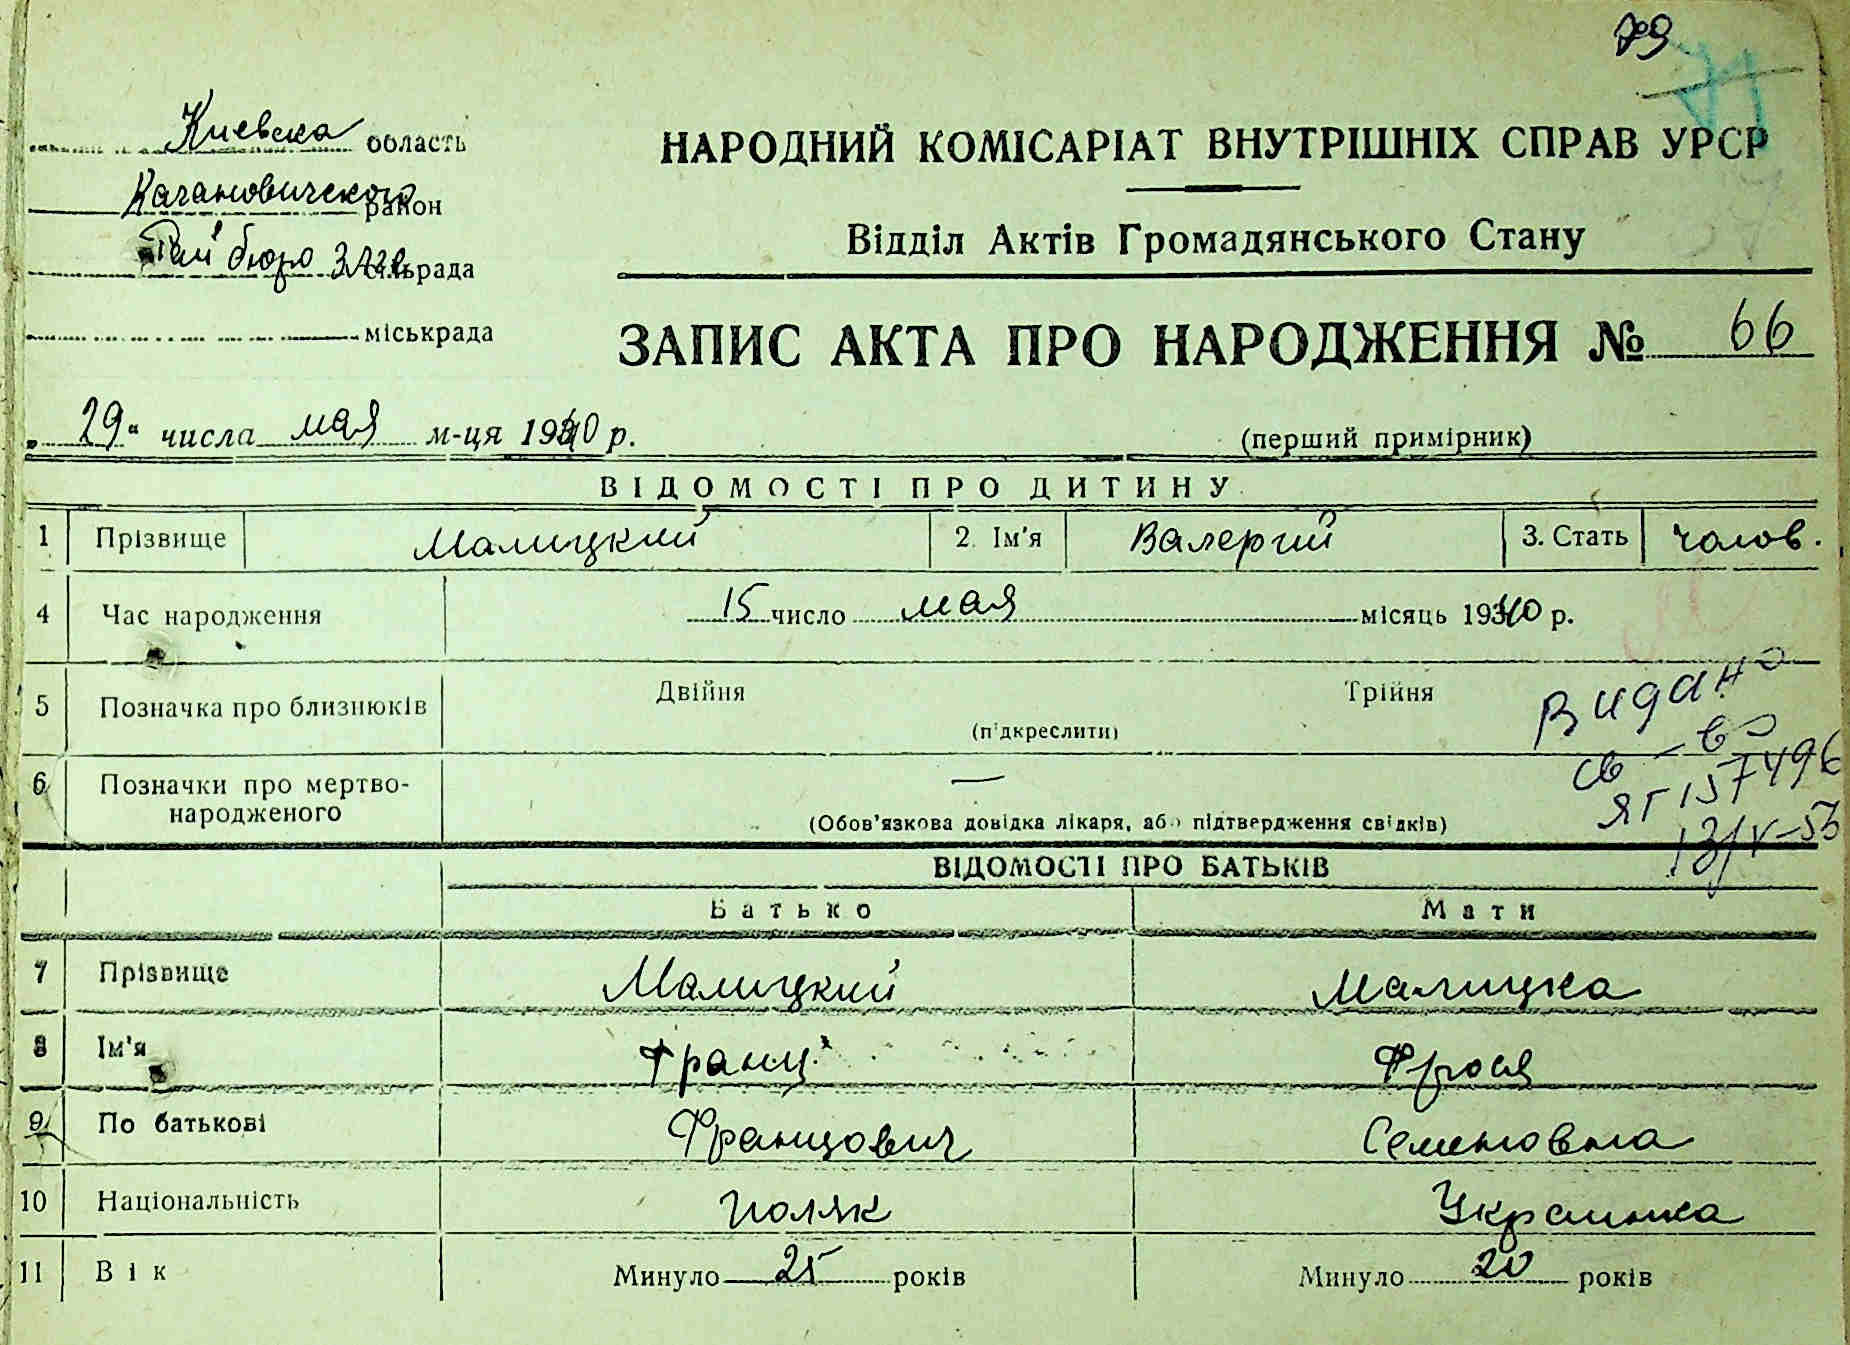 79
Киевска область
Кагановического район
Рай бюро ЗАГС сільрада
міськрада
НАРОДНИЙ КОМІСАРІАТ ВНУТРІШНІХ СПРАВ УРСР
Відділ Актів Громадянського Стану
ЗАПИС АКТА ПРО НАРОДЖЕННЯ № 66
„29“ числа мая м-ця 1940 р.
(перший примірник)
ВІДОМОСТІ ПРО ДИТИНУ
1 Прізвище Малицкий 2. Ім'я Валерий 3. Стать чолов.
4 Час народження 15 число мая місяць 1940 р.
5 Позначка про близнюків Двійня Трійня
(підкреслити)
Видано
св-во
ЯГ 157496
13/V-53
6 Позначки про мертво-
народженого —
(Обов'язкова довідка лікаря, або підтвердження свідків)
ВІДОМОСТІ ПРО БАТЬКІВ
Батько Мати
7 Прізвище Малицкий Малицка
8 Ім'я Франц Фрося
9 По батькові Францович Семеновна
10 Національність поляк Украинка
11 Вік Минуло 25 років Минуло 20 років